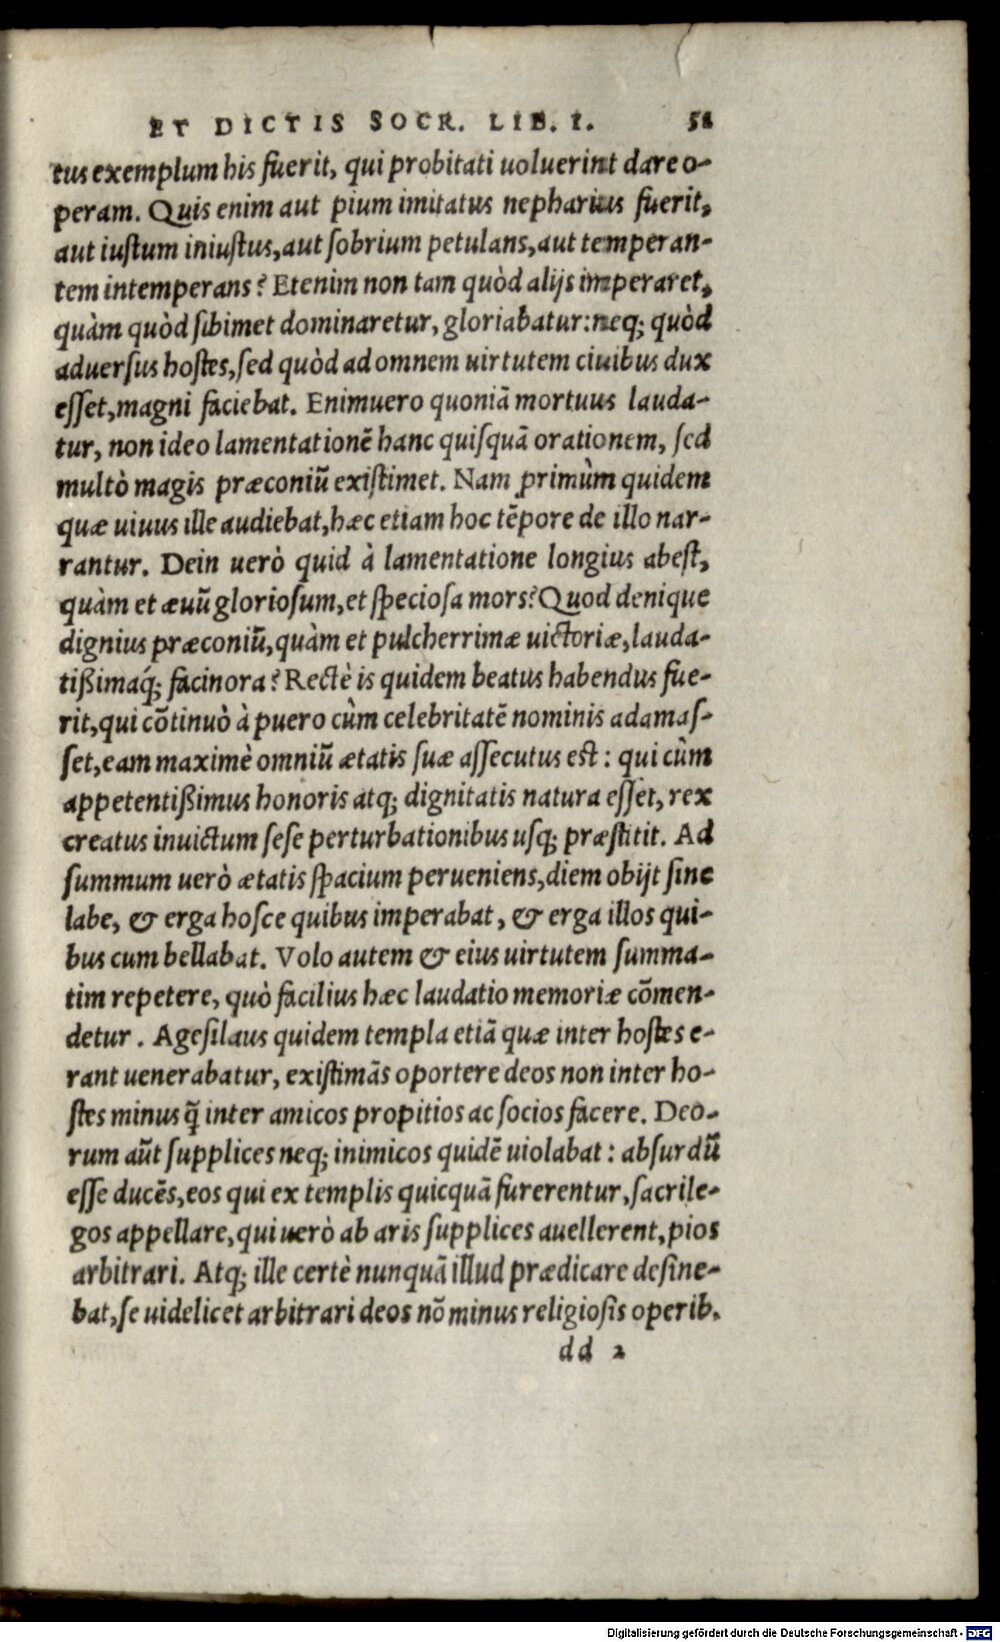 ET DICTIS SOCR. LIB. I. 
tus exemplum his fuerit, qui probitati uoluerint dare o-
peram. Quis enim aut pium imitatus nepharius fuerit,
aut iustum iniustus, aut sobrium petulans, aut temperan-
tem intemperans? Etenim non tam quòd alijs imperaret,
quàm quòd sibimet dominaretur, gloriabatur: neq; quòd
aduersus hostes, sed quòd ad omnem uirtutem ciuibus dux
esset, magni faciebat. Enimuero quoniā mortuus lauda-
tur, non ideo lamentationē hanc quisquā orationem, sed
multò magis præconiū existimet. Nam primùm quidem
quæ uiuus ille audiebat, hæc etiam hoc tēpore de illo nar-
rantur. Dein uerò quid à lamentatione longius abest,
quàm et æuū gloriosum, et speciosa mors? Quod denique
dignius præconiū, quàm et pulcherrimæ uictoriæ, lauda-
tißimaq́; facinora? Rectè is quidem beatus habendus fue-
rit, qui cōtinuò à puero cùm celebritatē nominis adamas-
set, eam maximè omniū ætatis suæ assecutus est: qui cùm
appetentißimus honoris atq; dignitatis natura esset, rex
creatus inuictum sese perturbationibus usq; præstitit. Ad
summum uerò ætatis spacium perueniens, diem obijt sine
labe, & erga hosce quibus imperabat, & erga illos qui-
bus cum bellabat. Volo autem & eius uirtutem summa-
tim repetere, quò facilius hæc laudatio memoriæ cōmen-
detur. Agesilaus quidem templa etiā quæ inter hostes e-
rant uenerabatur, existimās oportere deos non inter ho-
stes minus q̄ inter amicos propitios ac socios facere. Deo-
rum aūt supplices neq; inimicos quidē uiolabat: absurdū
esse ducēs, eos qui ex templis quicquā furerentur, sacrile-
gos appellare, qui uerò ab aris supplices auellerent, pios
arbitrari. Atq; ille certè nunquā illud prædicare desine-
bat, se uidelicet arbitrari deos nō minus religiosis operib.
dd 2
Digitalisierung gefördert durch die Deutsche Forschungsgemeinschaft - DFG